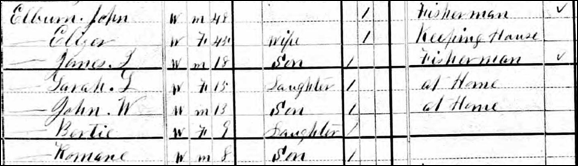 Elburn John W m 48 1 Fisherman ✓
— Elizer W F 45 Wife 1 Keeping House
— James S W m 18 Son 1 Fisherman ✓
— Sarah I W F 15 Daughter 1 at Home
— John W W m 13 Son 1 at Home
— Bertie W F 9 Daughter 1
— Romane W m 8 Son 1